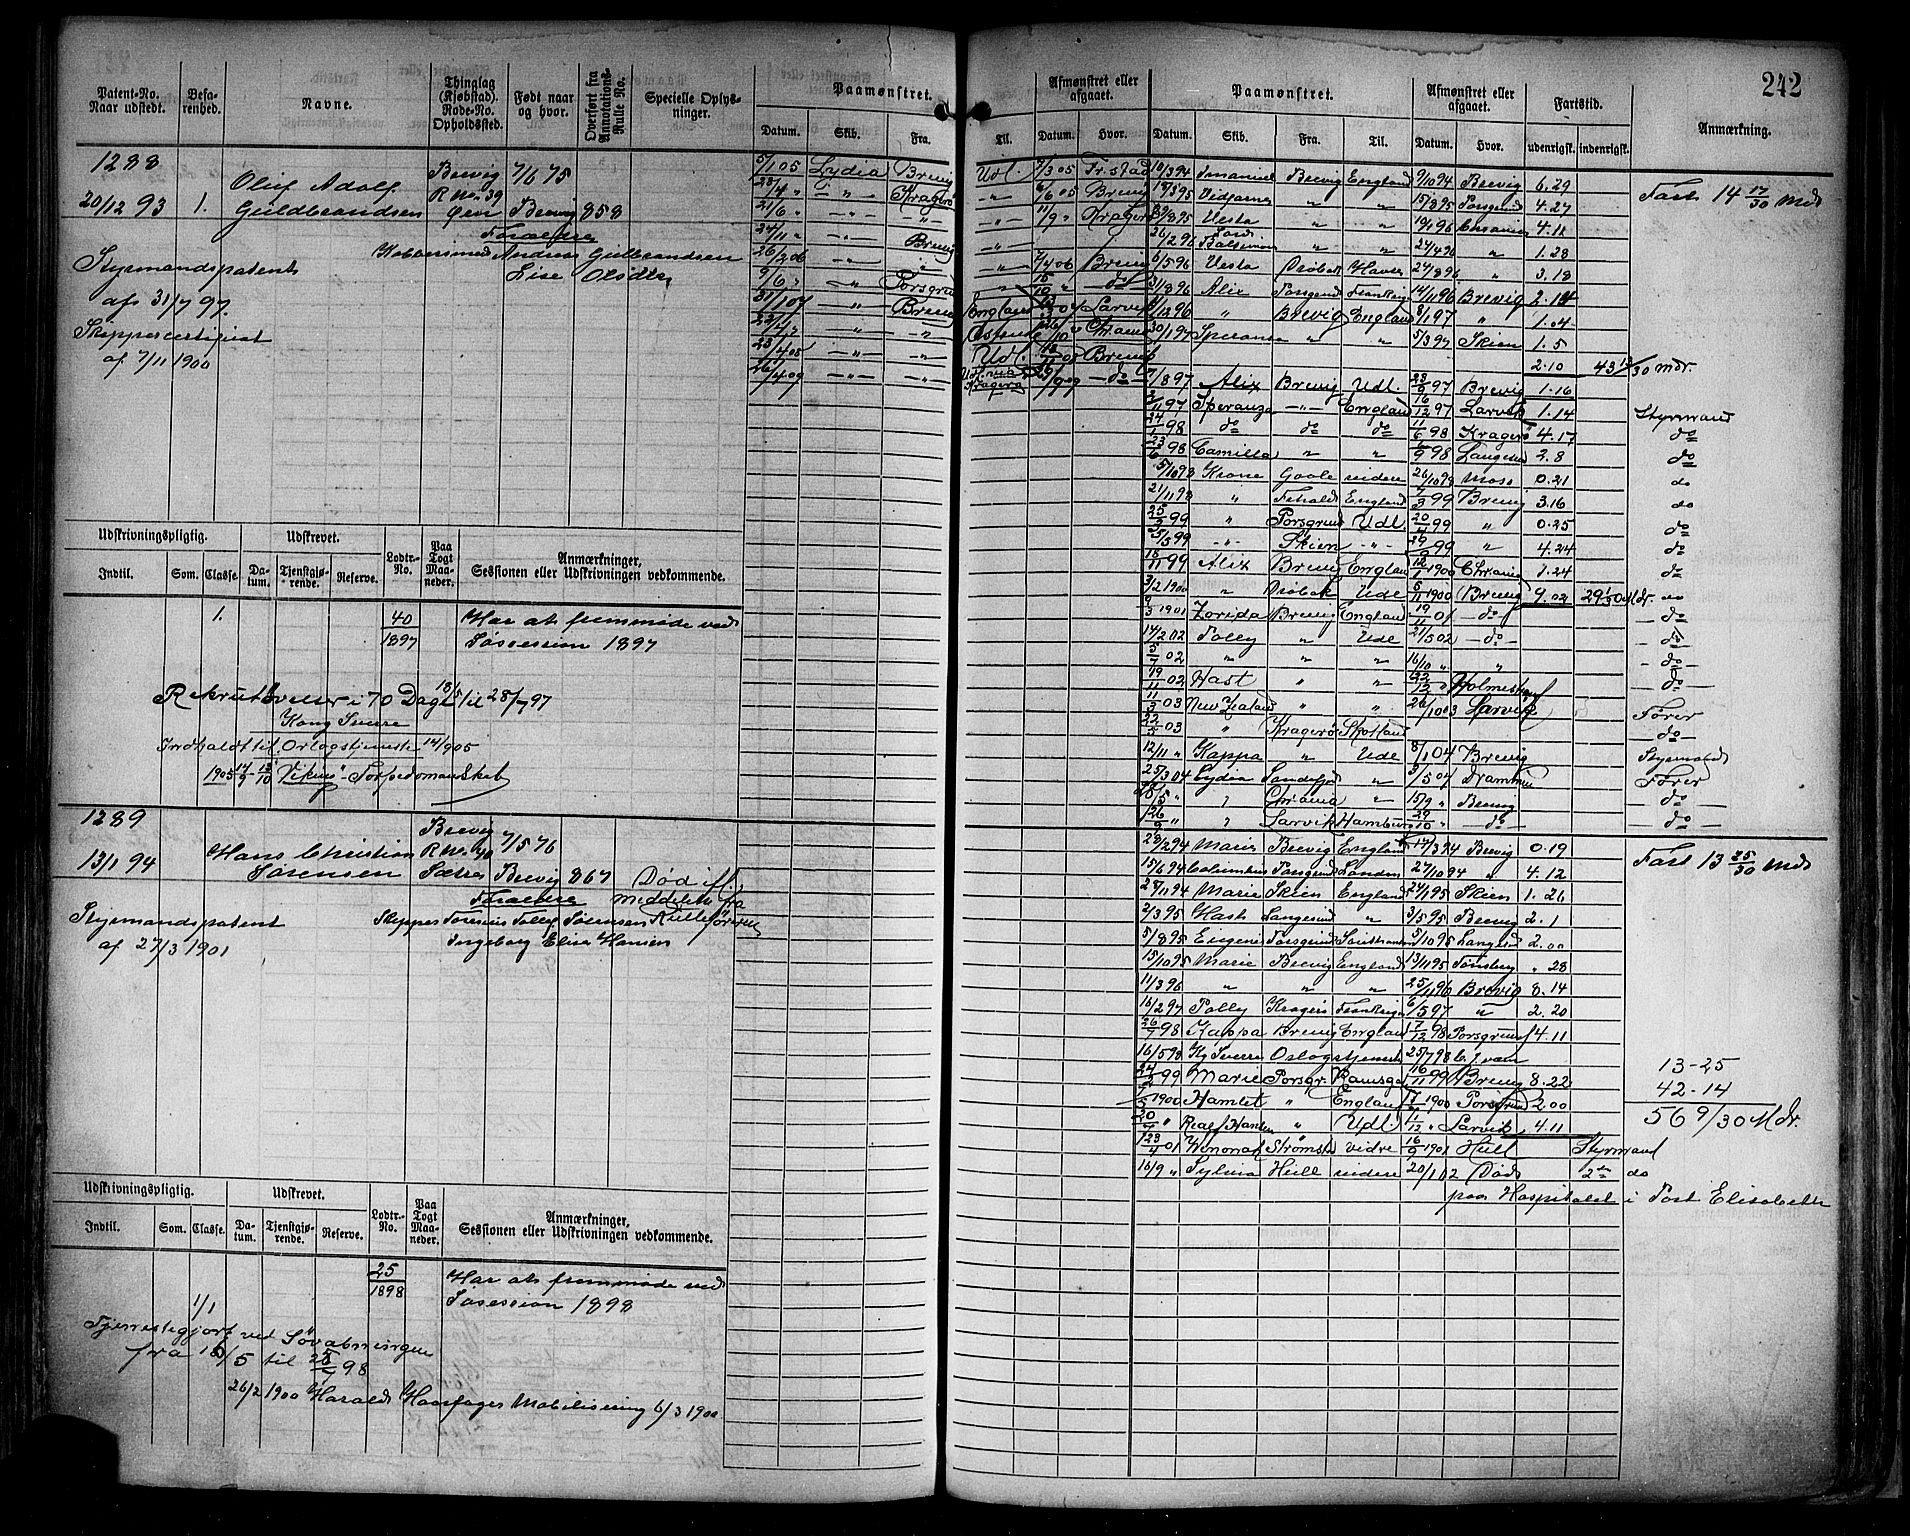 242
Patent-No. Naar udstedt.
Befa-renhed.
Navne.
Thinglag (Kjøbstad). Rode-No. Opholdssted.
Født naar og hvor.
Overført fra Annotations-Rulle No.
Specielle Oplys-ninger.
Paamønstret.
Datum. Skib. Fra. Til.
Afmønstret eller afgaaet.
Datum. Hvor.
Paamønstret.
Datum. Skib. Fra. Til.
Afmønstret eller afgaaet.
Datum. Hvor.
Fartstid.
udenrigsk. indenrigsk.
Anmærkning.
1288
20/12 93 1.
Oluf Adolf
Guldbrandsen
Brevig
R No. 39
Øen
7/6 75
Brevig 858
Forældre
Andreas Gulbrandsen
Lise Olsdtr
Styrmandspatent
af 31/7 97.
Skippercertificat
af 7/11 1900
5/1 05 Lydia Brevig Udl. 7/3 05 Fr.stad
Kragerø
21/6 "
Brevig
26/2 06 " 7/4 06 Brevig
9/6 " Porsgrund do
Brevig England Larvik
Ostende
Udl. Brevig
26/4 09 Kragerø do
10/3 94 Immanuel Brevig England 9/10 94 Brevig 6.29
Vidfarne " " 15/8 95 Porsgrund 4.27
Vesta " " Chrania 4.11
26/2 96 Lord " " 24/4 96 " 1.28
6/5 96 Vesta Drøbak Havre 24/8 96 " 3.18
31/8 96 Alix Porsgrund Frankrig 14/11 96 Brevig 2.14
/12 96 " Brevig England 8/1 97 " 1.04
30/1 97 Speranza " " 5/3 97 Skien 1.5
2.10 43 13/30 mdr.
7/8 97 Alix Brevig Udl. 23/9 97 Brevig 1.16
2/11 97 Speranza England 6/12 97 Larvik 1.14 Styrmand
24/1 98 do do do 11/6 98 Kragerø 4.17 do
23/6 98 Camilla " " 1/9 98 Langesund 2.8 do
5/10 98 Krone Goole videre 26/10 98 Moss 0.21 do
21/11 98 " England 7/3 99 Brevig 3.16 do
25/3 99 " Porsgrund Udl. 20/4 99 " 0.25 do
5/5 99 Skien 29/9 99 " 4.24 do
18/11 99 Alix Brevig England 12/1 1900 Chrania 1.24 do
3/2 1900 " Drøbak Udl 5/11 1900 Brevig 9.02 do
9/3 1901 Zorida Brevig England 19/11 01 do do
14/2 02 Polly " Udl 21/5 02 do do
5/7 02 " " " 16/10 " " do
19/11 02 Hast " " 22/12 " Holmestrand do
11/3 03 New Zealand " " Larvik Fører
22/5 03 " Kragerø Skotland do
12/11 " Kappa " Udl 8/1 04 Brevig
25/3 04 Lydia Sandefjord " 3/5 04 Drammen Fører
" Chrania " 15/9 " Brevig do
26/9 " " Larvik Hamburg 29/10 " do do
Fart 14 17/30 Mdr
Udskrivningspligtig.
Udskrevet.
Lodtr.-No.
Paa Togt Maa-neder.
Anmærkninger, Sessionen eller Udskrivningen vedkommende.
Indtil. Som. Classe. Da-tum. Tjenstgjø-rende. Reserve.
1. 40/1897
Har at fremmøde ved
Søsession 1897
Rekrutøvelser i 70 Dage 18/5 til 28/7 97
Kong Sverre
Indkaldt til Orlogstjeneste 14/9 05
1905 14/9 - 13/10 "Viking" - Torpedomandskab
1289
13/1 94
Hans Christian
Sørensen
Brevig
R No. 40
Sætre
7/5 76
Brevig 867
Død ifl.
meddelelse fra
Rulleføreren
Forældre
Skipper Sørenius Tolley Sørensen
Ingeborg Elise Hansen
Styrmandspatent
af 27/3 1901
28/2 94 Marie Brevig England 17/3 94 Brevig 0.19
15/6 94 Columbus Porsgrund London 27/10 94 " 4.12
2/11 94 Marie Skien England 24/1 95 Skien 1.26
2/3 95 Hast Langesund " 3/5 95 Brevig 2.1
5/8 95 Eugenie Porsgrund 5/10 95 Langesund 2.00
15/10 95 Marie Brevig England 13/11 95 Tønsberg " 28
11/3 96 " " " 25/11 96 Brevig 8.14
16/2 97 Polly Kragerø Frankrig 6/5 97 " 2.20
26/7 98 Kappa Brevig England 7/12 98 Porsgrund 4.11
16/5 98 Kg Sverre Orlogstjeneste 25/7 98
24/2 99 Marie Porsgr. Ramsgate 16/11 99 Brevig 8.22
1900 Hamlet " England 1900 Porsgrund 2.00
20/7 " " Udl. 1/12 " Larvik 4.11
23/4 01 Wononah Strømst. vidre 16/9 1901 Hull Styrmand
16/9 " Sylvia Hull videre 20/1 02 Død 2den do
paa Hospitalet i Port Elisabeth
Fart 13 25/30 Mdr
13-25
42-14
56 9/30 Mdr.
Udskrivningspligtig.
Udskrevet.
Lodtr.-No.
Paa Togt Maa-neder.
Anmærkninger, Sessionen eller Udskrivningen vedkommende.
Indtil. Som. Classe. Da-tum. Tjenstgjø-rende. Reserve.
1/1 25/1898
Har at fremmøde ved
Søsession 1898
Tjenestegjort ved Søvæbningen
fra 16/5 til 25/7 98
26/2 1900 Harald Haarfager Mobilisering 6/3 1900